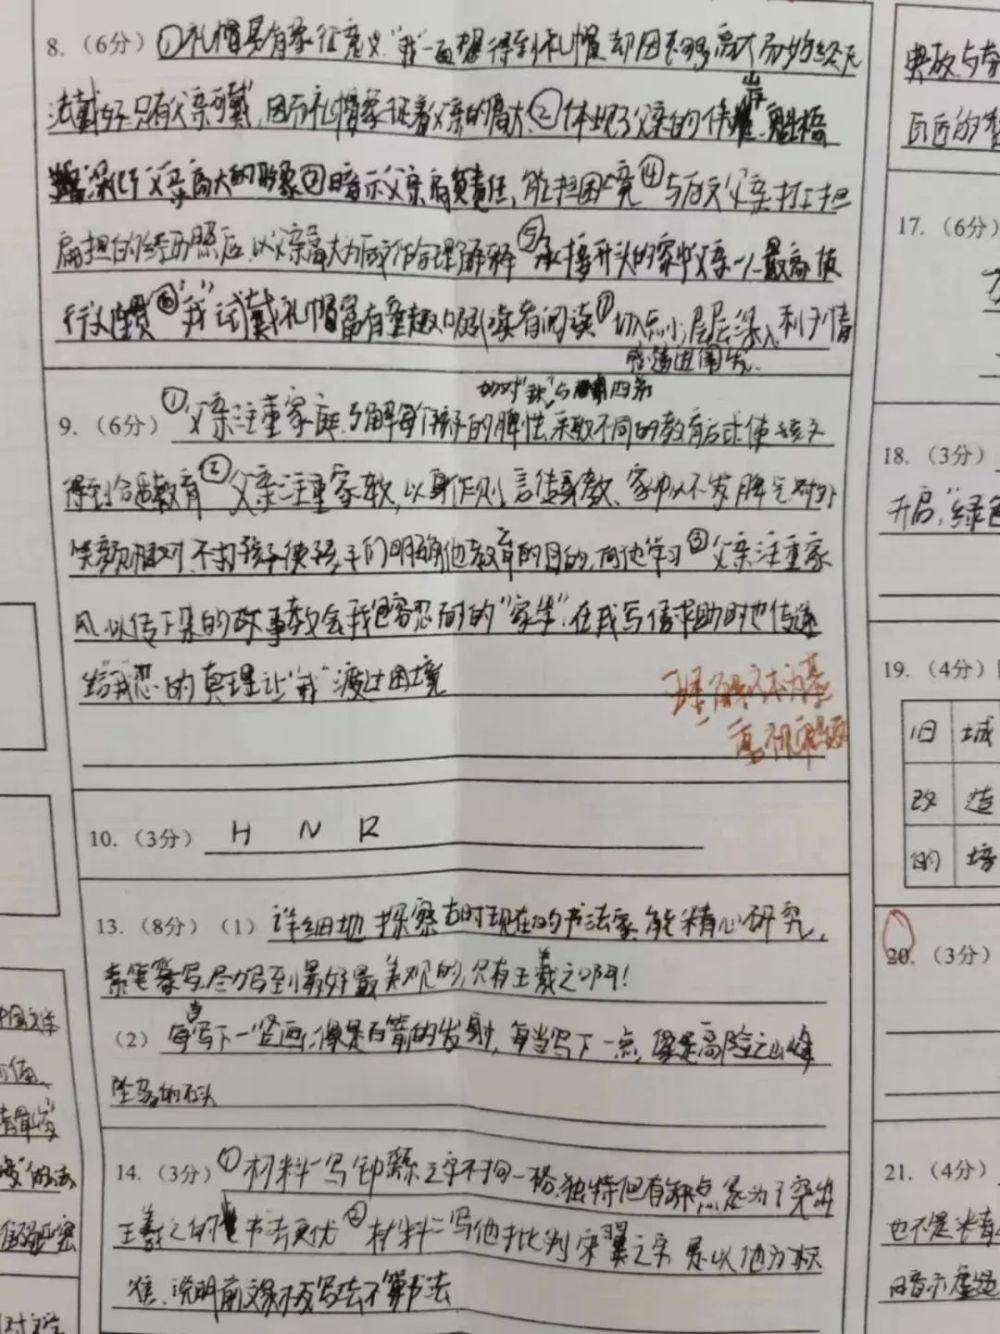 8.（6分）①礼帽具有象征意义."我"一直想得到礼帽,却因不够高大而始终无
法戴好.只有父亲可戴",因而礼帽象征着父亲的高大.②体现了父亲的伟岸、魁梧
深化了父亲高大的形象③暗示父亲肩负责任,能担困境④与后文父亲打上担
扁担的经历照应,以父亲高大为后文作合理解释⑤承接开头的家中父亲一人最高
行文连贯⑥"我"试戴礼帽富有童趣吸引读者阅读⑦切入点小,层层深入,利于情
感递进阐发.
如对"我"与四弟
9.（6分）①父亲注重家庭,了解每个孩子的脾性,采取不同的教育方式使孩子
得到合适教育②父亲注重家教,以身作则,言传身教.家中从不发脾气,对外
笑颜相对.不打孩子使孩子们明确他教育的目的,向他学习③父亲注重家
风,以传下来的故事教会我包容忍耐的"家学",在我写信求助时也传递
给我忍的真理让"我"渡过困境
理解文本为基
10.（3分） H N R
13.（8分）（1）详细地探察古时现在的书法家,能精心研究,
写尽力写到最好最美观的,只有王羲之啊!
（2）每当写下一竖画,像是百箭的发射,每当写下一点,像是高险之山峰
坠落的石头
14.（3分）①材料一写钟繇之字不同一格,独特但有缺点,是为了突出
王羲之的书法更优②材料二写他批判宋翼之字是以他为标
准,说明前文写法不算书法
典故与
百
17.（6分）
18.（3分）
开启"绿色
19.（4分）
旧 城
改 造
的 培
20.（3分）
21.（4分）
也不是没有
暗示虚